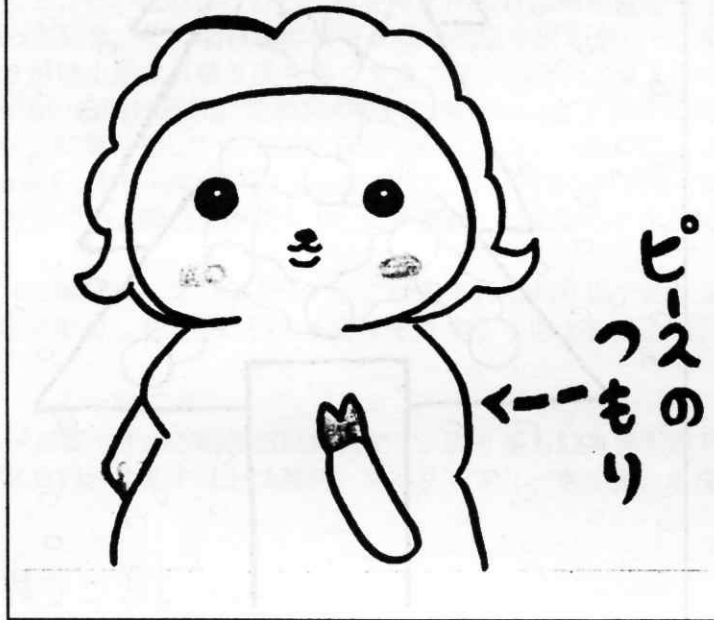 ピースの
つもり